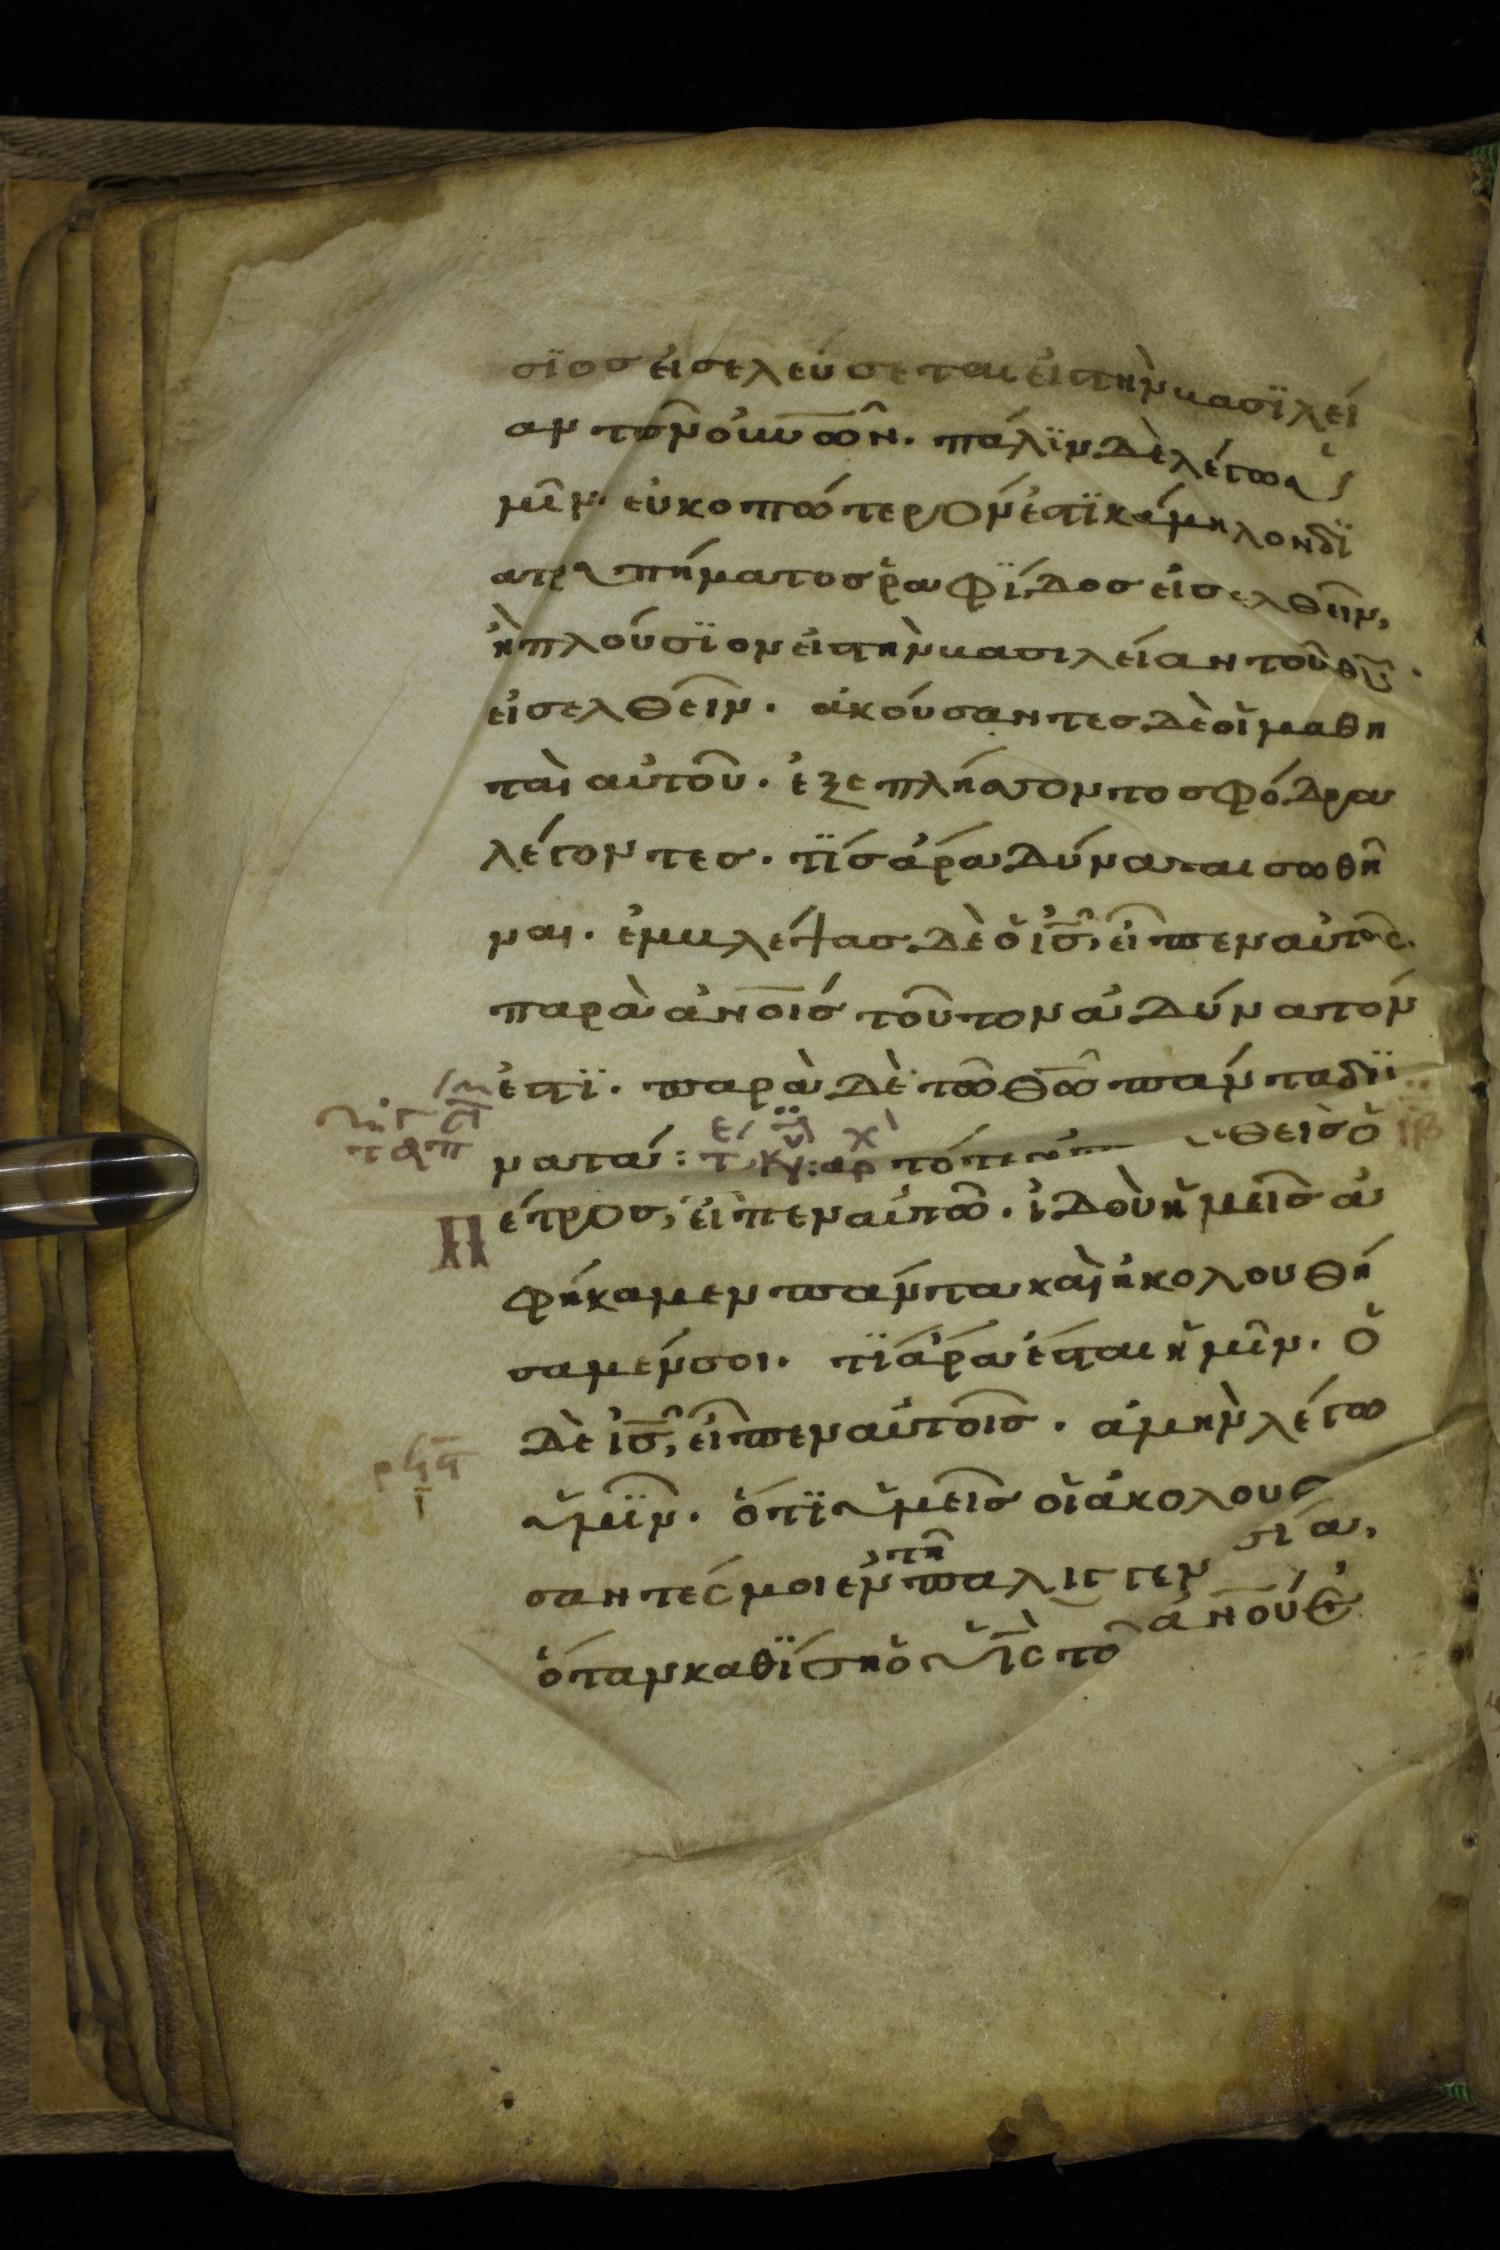 σϊοσ εἰσελεύσεται εἰς τὴν βασϊλεί
αν τῶν οὐν̅ῶν. πάλϊν δὲ λέγω ὑ
μῖν. εὐκοπώτερον ἐστϊ κάμηλον δϊ
ατρυπήματοσ ῥαφΐδος εἰσελθεῖν,
ἢ πλούσϊον εἰς τὴν βασιλείαν τοῦ θ̅υ̅
εἰσελθεῖν. ἀκούσαντες δὲ οἱ μαθη
ταὶ αὐτοῦ. ἐξεπλήσσοντο σφόδρα
λέγοντεσ. τΐσ ἄρα δύναται σωθῆ
ναι. ἐμβλέψασ δὲ ὁ ι̅σ̅, εἶπεν αὐτοῖς.
παρὰ ἀν̅οισ τοῦτο ν ἀδύνατόν
ἐστϊ. παρὰ δὲ τῶ θ̅ῶ̅ πάντα δϋ
νατά: τό θεὶσ ὁ
Πέτρος, εἶπεν αὐτῶ. ἰδοὺ ἡμεῖσ ἀ
φήκαμεν πάντα καὶ ἠκολουθή
σαμέν σοι. τΐ ἄρα ἔσται ἡμῖν. ὁ
δὲ ι̅σ̅, εἶπεν αὐτοῖσ. ἀμὴν λέγω
ὑμῖν. ὅτϊ ὑμεῖσ οἱ ἀκολουθ
σαντές μοι ἐν τῆ παλιγγεν σία,
ὅταν καθΐση ὁ υ̅ἱ̅ς τοῦ ἀν̅ου ἐ